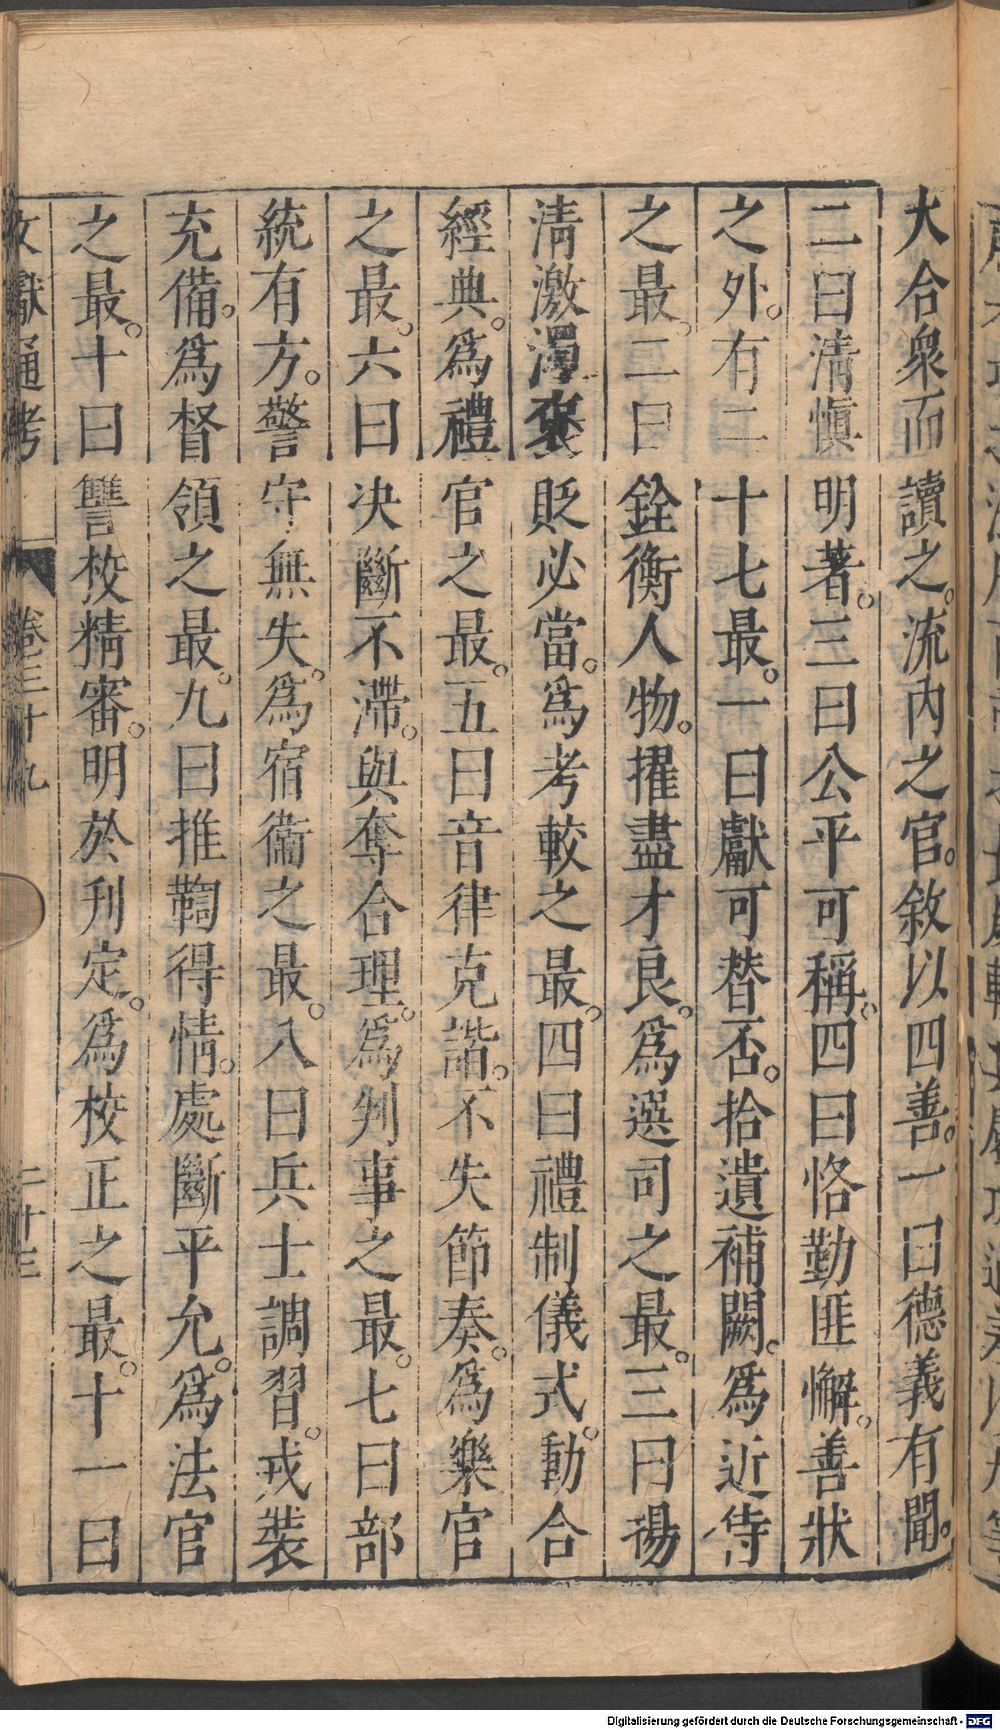 大合衆而讀之。流內之官。敘以四善。一曰德義有聞。
二曰清慎明著。三曰公平可稱。四曰恪勤匪懈。善狀
之外。有二十七最。一曰獻可替否。拾遺補闕。爲近侍
之最。二曰銓衡人物。擢盡才良。爲選司之最。三曰揚
清激濁褒貶必當。爲考較之最。四曰禮制儀式。動合
經典。爲禮官之最。五曰音律克諧。不失節奏。爲樂官
之最。六曰決斷不滯。與奪合理。爲判事之最。七曰部
統有方。警守無失。爲宿衞之最。八曰兵士調習。戎裝
充備。爲督領之最。九曰推鞫得情。處斷平允。爲法官
之最。十曰讐校精審。明於刋定。爲校正之最。十一曰
文獻通考 卷三十九 二十三
Digitalisierung gefördert durch die Deutsche Forschungsgemeinschaft - DFG